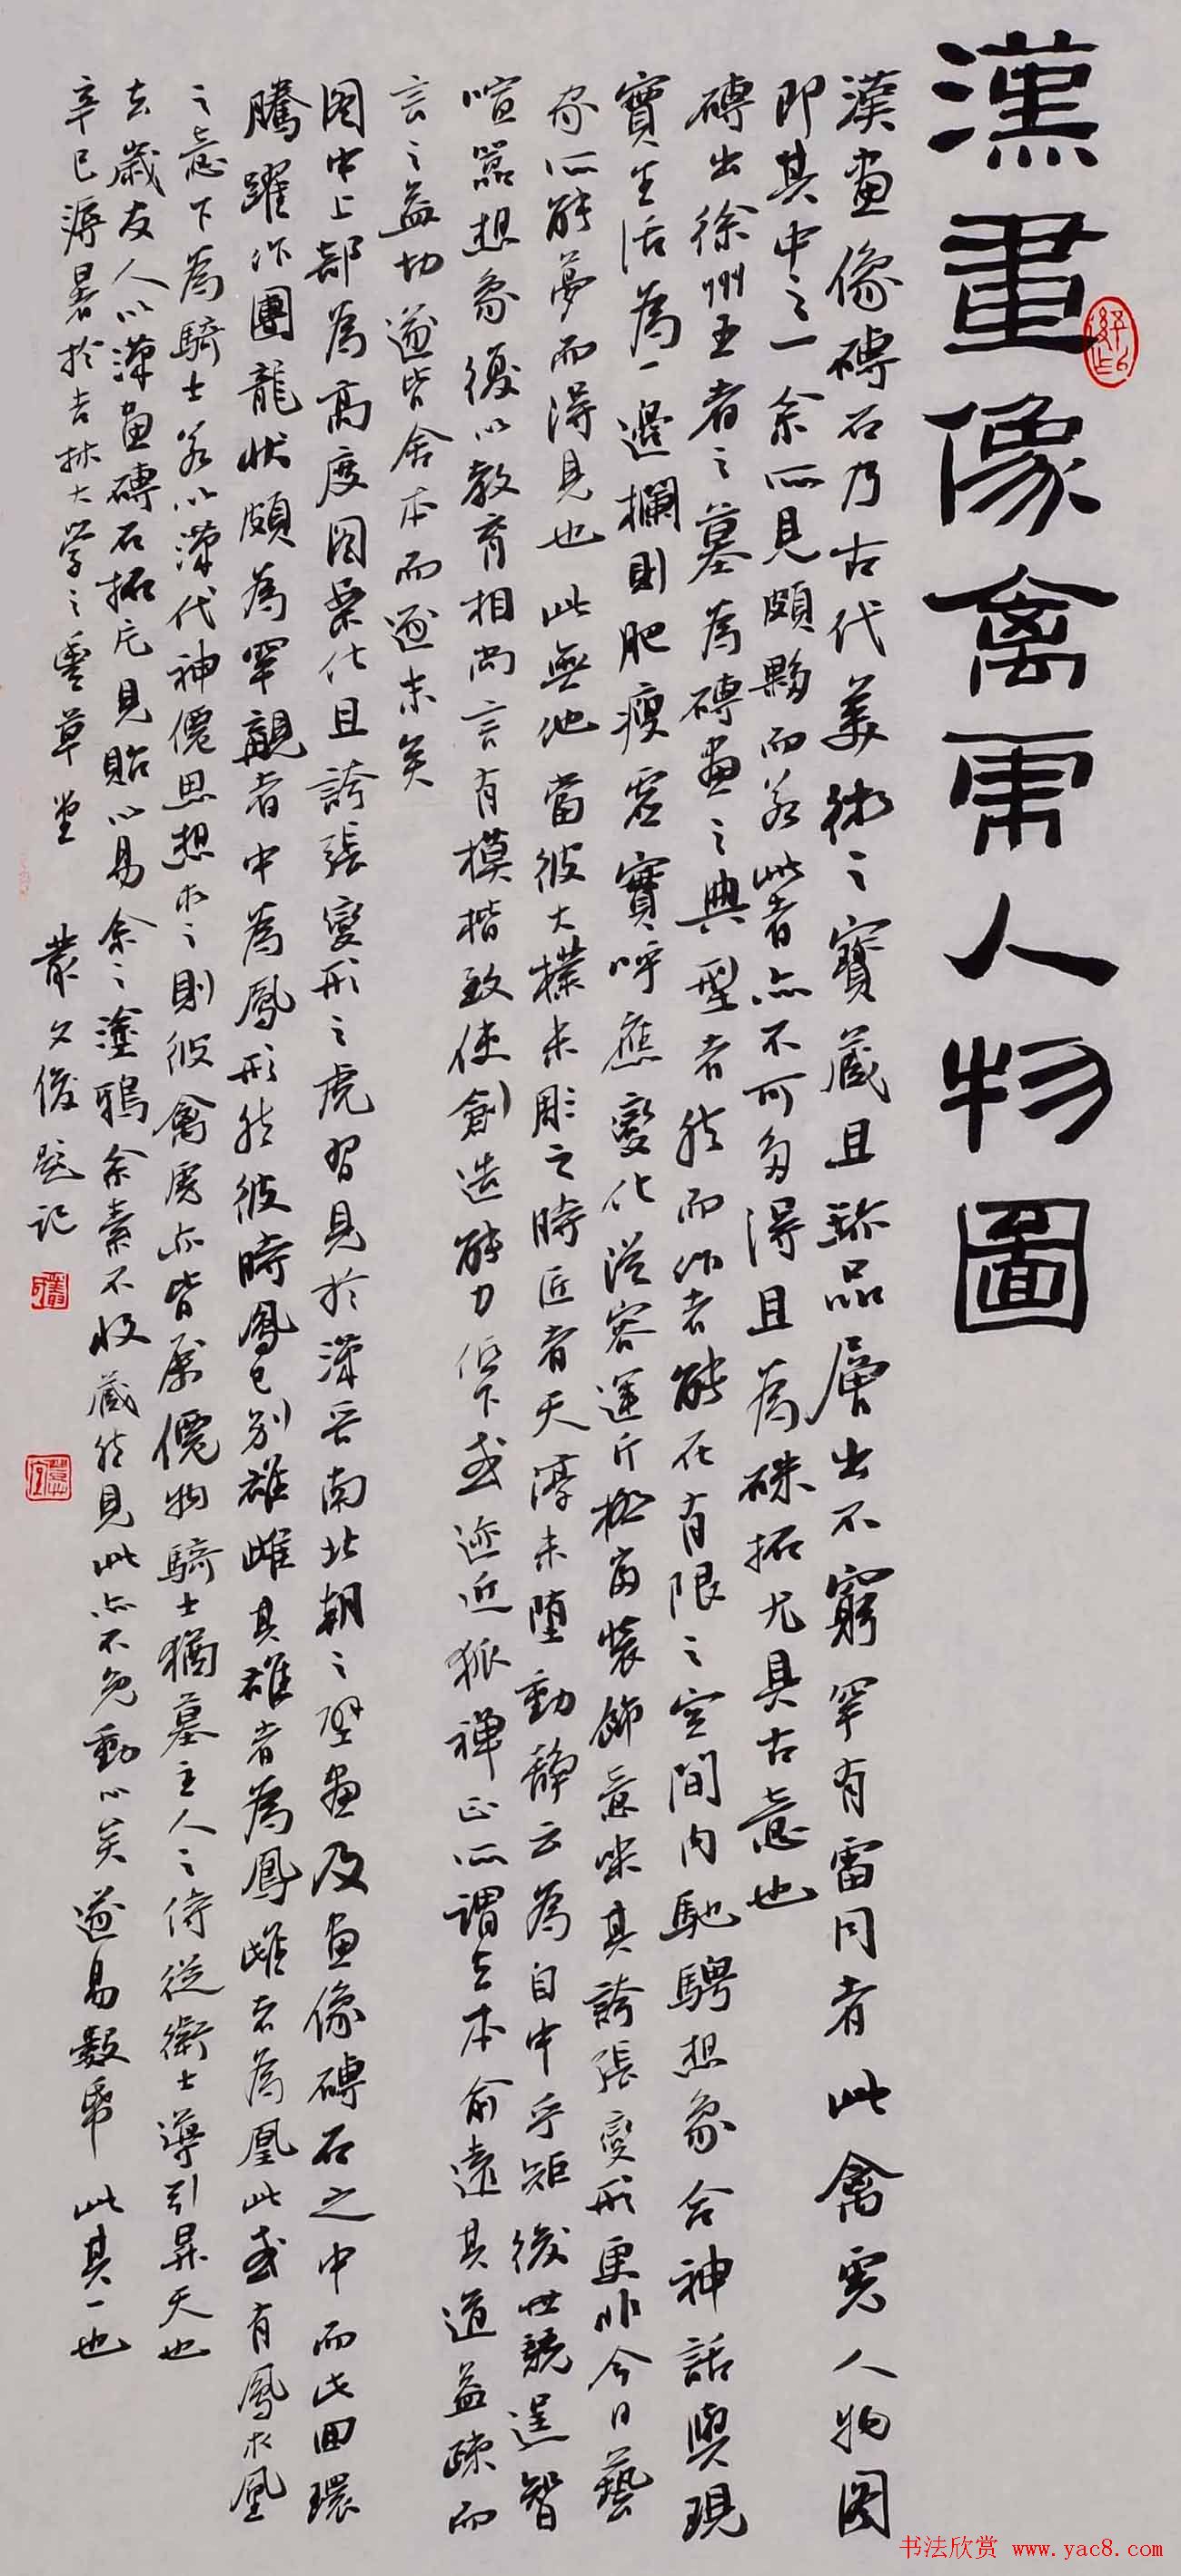 漢畫像禽虎人物圖
漢畫像磚石乃古代美術之寶藏且珎品層出不窮罕有雷同者此禽虎人物图
即其中之一余所見頗夥而若此者亦不可多得且為硃拓尤具古意也
磚出徐州王者之墓為磚畫之典型者然而作者能在有限之空間内馳騁想象合神話與現
實生活為一邊欄則肥瘦虚實呼應變化從容運斤極富裝飾意味其誇張變形更非今日藝
家所能夢而得見也此無他當彼大樸未彫之時匠者天淳未墮動静云為自中乎矩後世競逞智
喧嚣想象復以教育相尚言有模楷致使創造能力低下或迹近狐禅正所謂去本俞遠其道益疎而
言之益切遂皆舍本而逐末矣
图中上部為高度图案化且誇張變形之虎習見於漢晋南北朝之壁畫及畫像磚石之中而此回環
騰躍作團龍狀頗為罕覯者中為鳳形然彼時鳳已别雄雌其雄者為鳳雌者為凰此或有鳳求凰
之意下為騎士若以漢代神僊思想求之則彼禽虎亦皆属僊物騎士猶墓主人之侍從衛士導引昇天也
去歲友人以漢畫磚石拓片見貽以易余之塗鴉余素不收藏然見此亦不免動心矣遂易數帋此其一也
辛巳溽暑於吉林大学之雪草堂 叢文俊題记
书法欣赏 www.yac8.com